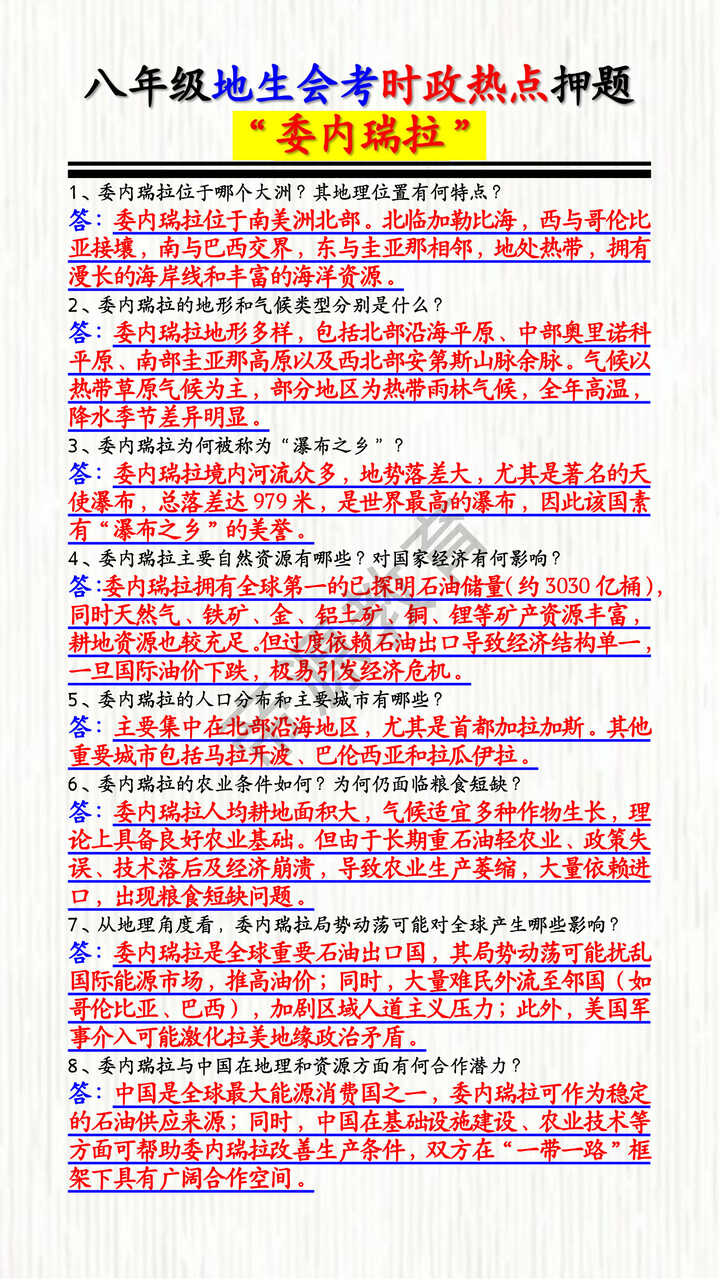 八年级地生会考时政热点押题
“委内瑞拉”
1、委内瑞拉位于哪个大洲？其地理位置有何特点？
答：委内瑞拉位于南美洲北部。北临加勒比海，西与哥伦比
亚接壤，南与巴西交界，东与圭亚那相邻，地处热带，拥有
漫长的海岸线和丰富的海洋资源。
2、委内瑞拉的地形和气候类型分别是什么？
答：委内瑞拉地形多样，包括北部沿海平原、中部奥里诺科
平原、南部圭亚那高原以及西北部安第斯山脉余脉。气候以
热带草原气候为主，部分地区为热带雨林气候，全年高温，
降水季节差异明显。
3、委内瑞拉为何被称为“瀑布之乡”？
答：委内瑞拉境内河流众多，地势落差大，尤其是著名的天
使瀑布，总落差达 979 米，是世界最高的瀑布，因此该国素
有“瀑布之乡”的美誉。
4、委内瑞拉主要自然资源有哪些？对国家经济有何影响？
答：委内瑞拉拥有全球第一的已探明石油储量（约 3030 亿桶），
同时天然气、铁矿、金、铝土矿、铜、锂等矿产资源丰富，
耕地资源也较充足。但过度依赖石油出口导致经济结构单一，
一旦国际油价下跌，极易引发经济危机。
5、委内瑞拉的人口分布和主要城市有哪些？
答：主要集中在北部沿海地区，尤其是首都加拉加斯。其他
重要城市包括马拉开波、巴伦西亚和拉瓜伊拉。
6、委内瑞拉的农业条件如何？为何仍面临粮食短缺？
答：委内瑞拉人均耕地面积大，气候适宜多种作物生长，理
论上具备良好农业基础。但由于长期重石油轻农业、政策失
误、技术落后及经济崩溃，导致农业生产萎缩，大量依赖进
口，出现粮食短缺问题。
7、从地理角度看，委内瑞拉局势动荡可能对全球产生哪些影响？
答：委内瑞拉是全球重要石油出口国，其局势动荡可能扰乱
国际能源市场，推高油价；同时，大量难民外流至邻国（如
哥伦比亚、巴西），加剧区域人道主义压力；此外，美国军
事介入可能激化拉美地缘政治矛盾。
8、委内瑞拉与中国在地理和资源方面有何合作潜力？
答：中国是全球最大能源消费国之一，委内瑞拉可作为稳定
的石油供应来源；同时，中国在基础设施建设、农业技术等
方面可帮助委内瑞拉改善生产条件，双方在“一带一路”框
架下具有广阔合作空间。